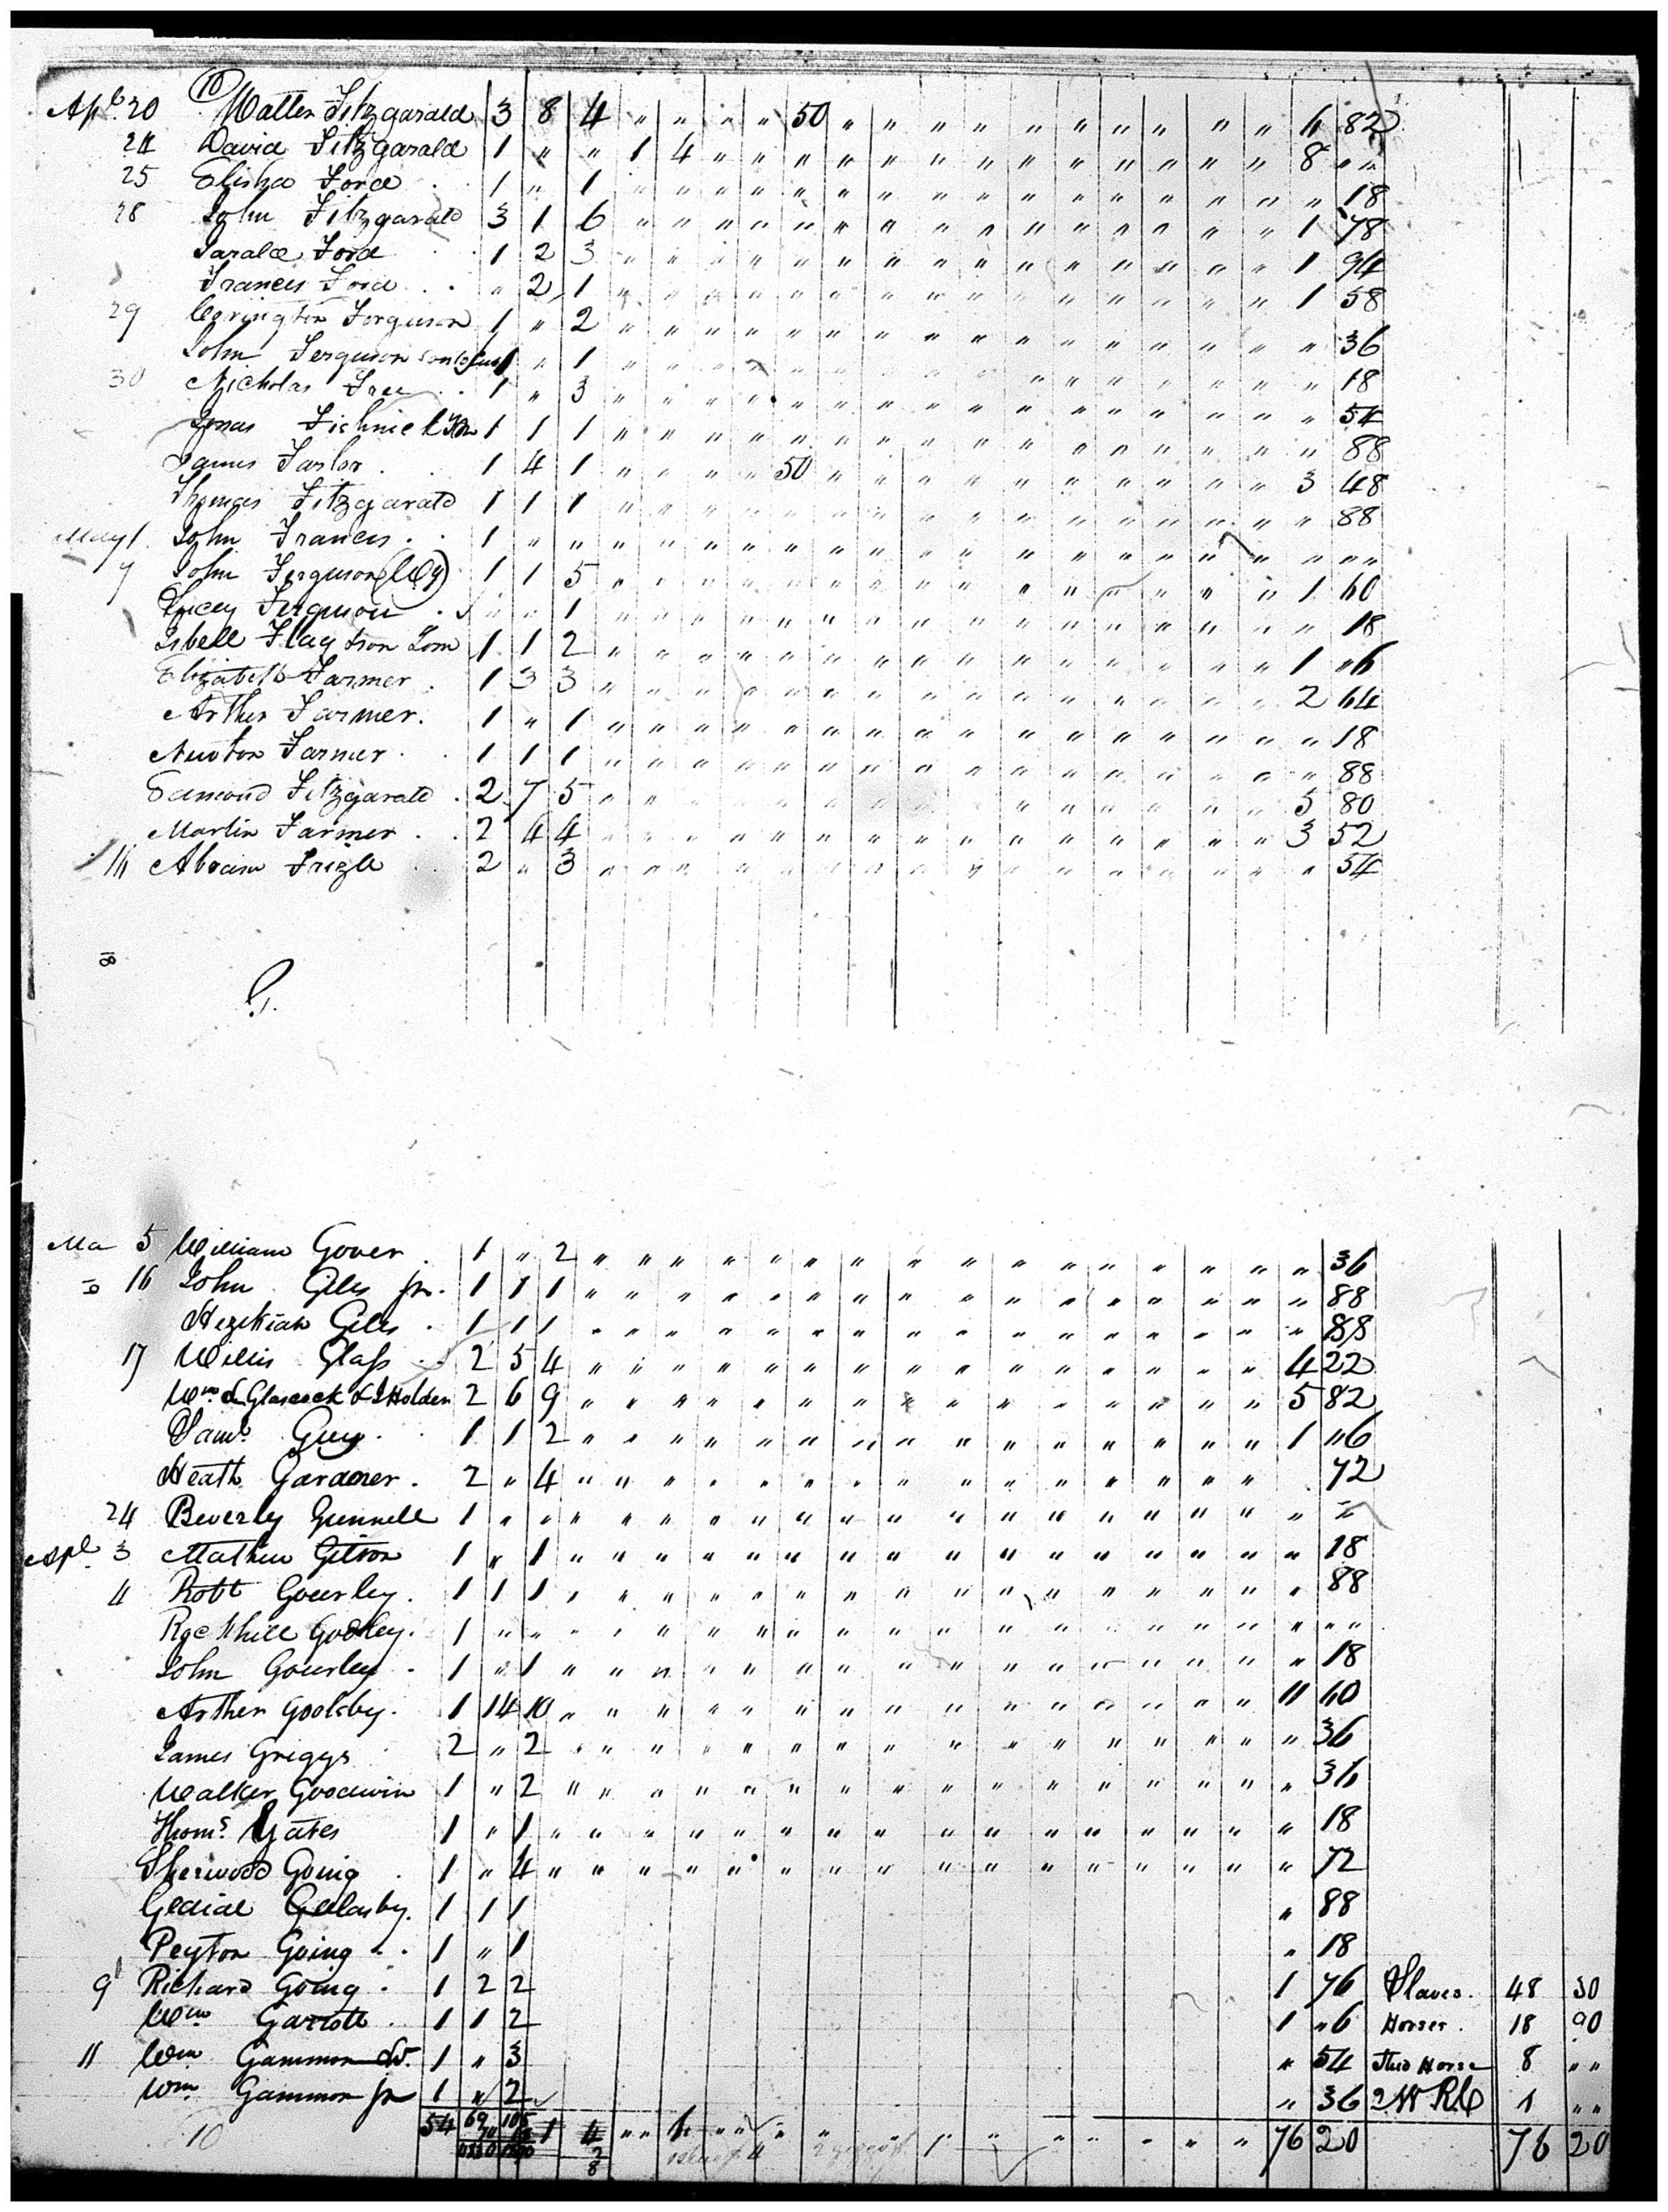 10
Apl 20 Walter Fitzgarald 3 8 4 " " " " 50 " " " " " " " " " " 6 82
24 David Fitzgarald 1 " " 1 4 " " " " " " " " " " " " " 8 " "
25 Elisha Ford 1 " 1 " " " " " " " " " " " " " " " " 18
28 John Fitzgarald 3 1 6 " " " " " " " " " " " " " " " 1 78
Sarah Ford 1 2 3 " " " " " " " " " " " " " " " 1 94
Frances Ford " 2 1 " " " " " " " " " " " " " " " 1 58
29 Covington Forguson 1 " 2 " " " " " " " " " " " " " " " " 36
John Ferguson 1 " 1 " " " " " " " " " " " " " " " " 18
30 Nicholas Free 1 " 3 " " " " " " " " " " " " " " " " 54
Jonas 1 1 1 " " " " " " " " " " " " " " " " 88
James 1 4 1 " " " " 50 " " " " " " " " " " 3 48
Thomas Fitzgarald 1 1 1 " " " " " " " " " " " " " " " " 88
May 1 John Frances 1 " " " " " " " " " " " " " " " " " " " "
7 John Ferguson 1 1 5 " " " " " " " " " " " " " " " 1 60
Lucey Ferguson " " 1 " " " " " " " " " " " " " " " " 18
Isbell Flag & son Tom 1 1 2 " " " " " " " " " " " " " " " 1 "6
Elizabeth Farmer 1 3 3 " " " " " " " " " " " " " " " 2 64
Arther Farmer. 1 " 1 " " " " " " " " " " " " " " " " 18
Newton Farmer 1 1 1 " " " " " " " " " " " " " " " " 88
Edmond Fitzgarald 2 7 5 " " " " " " " " " " " " " " " 5 80
Martin Farmer 2 4 4 " " " " " " " " " " " " " " " 3 52
16 Abram Frizle 2 " 3 " " " " " " " " " " " " " " " " 54
18
G.
Ma 5 William Gover 1 " 2 " " " " " " " " " " " " " " " " 36
16 John Giles jr. 1 1 1 " " " " " " " " " " " " " " " " 88
Hezekiah Giles 1 1 1 " " " " " " " " " " " " " " " " 88
17 Willis Glass 2 5 4 " " " " " " " " " " " " " " " 4 22
Wm & Glascock & J Holden 2 6 9 " " " " " " " " " " " " " " " 5 82
Saml Guy 1 1 2 " " " " " " " " " " " " " " " 1 "6
Heath Gardner 2 " 4 " " " " " " " " " " " " " " " 72
24 Beverly Gunnell 1 " " " " " " " " " " " " " " " " " "
Apl 3 Mathew Gitson 1 " 1 " " " " " " " " " " " " " " " " 18
4 Robt Gourley. 1 1 1 " " " " " " " " " " " " " " " " 88
1 " " " " " " " " " " " " " " " " " " " "
John Gourley 1 " 1 " " " " " " " " " " " " " " " " 18
Arther Goolsby. 1 14 10 " " " " " " " " " " " " " " " 11 60
James Griggs 2 " 2 " " " " " " " " " " " " " " " " 36
Walker Goodwin 1 " 2 " " " " " " " " " " " " " " " " 36
Thoms. Gates 1 " 1 " " " " " " " " " " " " " " " " 18
Sherwood Going 1 " 4 " " " " " " " " " " " " " " " " 72
1 1 1 " 88
Peyton Going 1 " 1 " 18
9 Richard Going 1 2 2 1 76 Slaves. 48 30
Wm Garrott 1 1 2 1 "6 Horses. 18 90
11 Wm Gammon Sr. 1 " 3 " 54 Stud Horse 8 " "
Wm Gammon jr 1 " 2 " 36 2 W 1 " "
10 54 69 105 1 4 " " 1 " " " " " 1 " " " " " " " 76 20 76 20